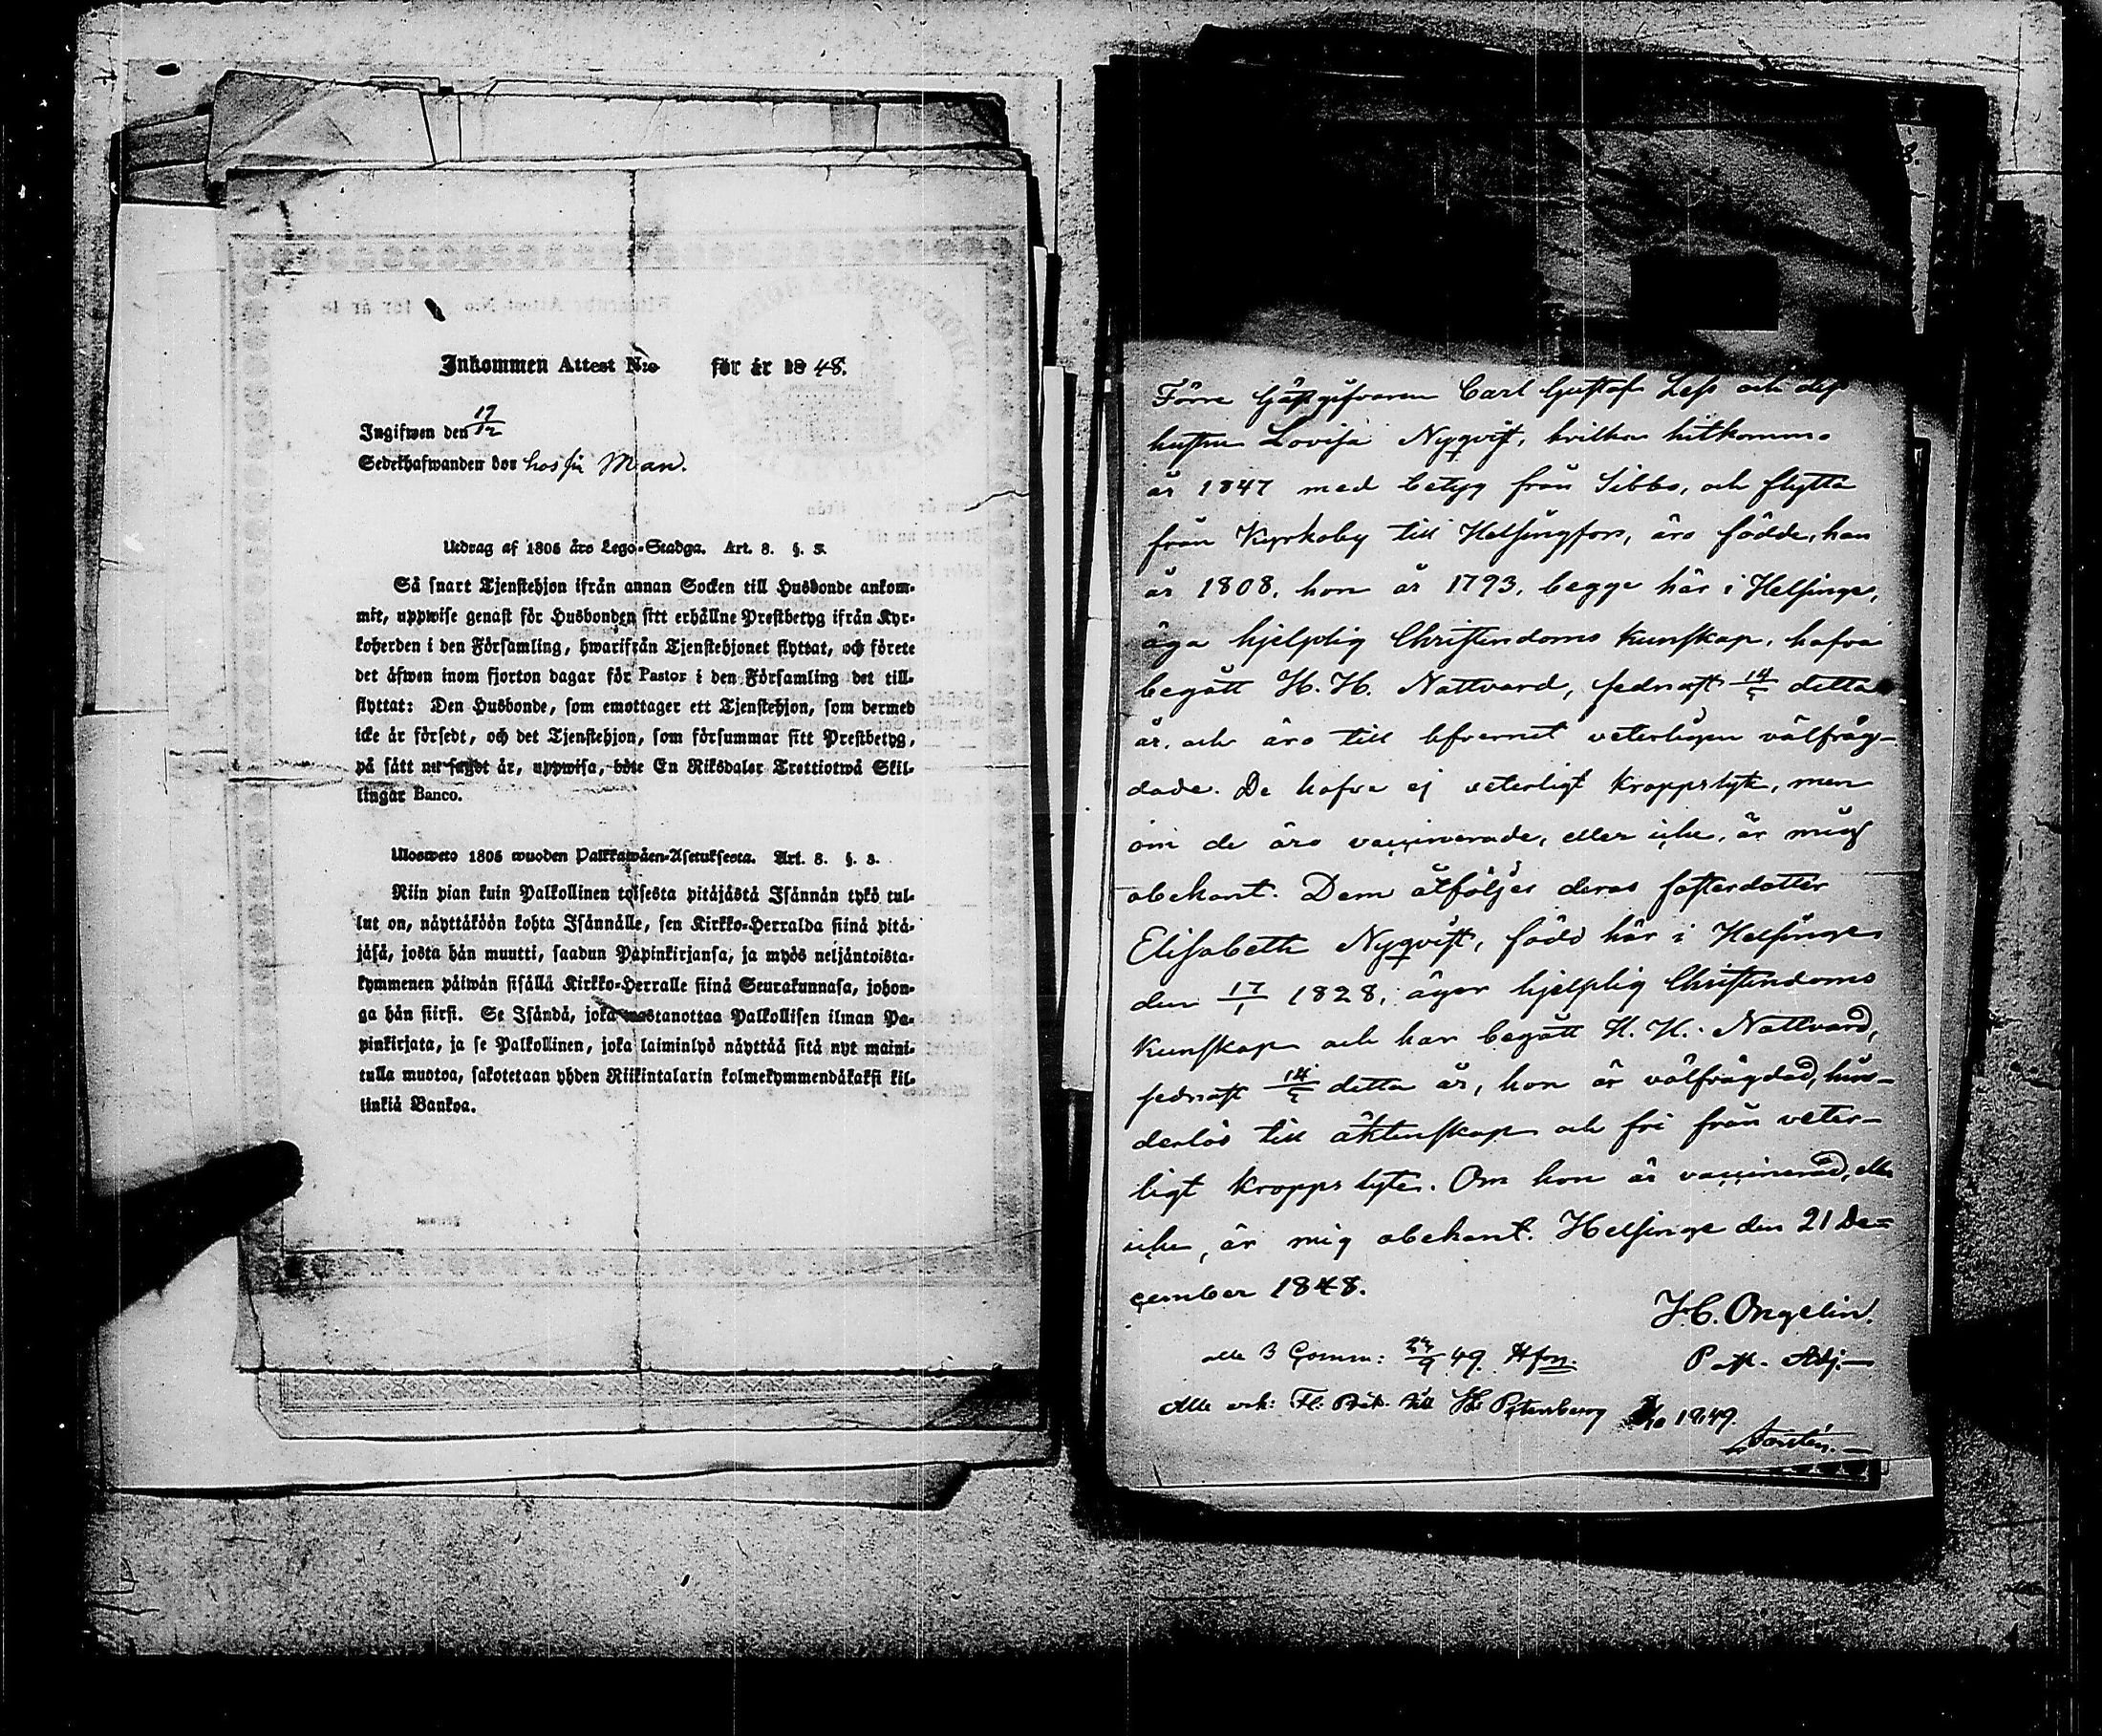 Inkommen Attest N:o för år 1848.
Ingifwen den 19/12
Sedelhafwanden bor hos sin Man.
Utdrag af 1805 års Lego-Stadga. Art. 8. §. 3.
Så snart Tjenstehjon ifrån annan Socken till Husbonde ankom-
mit, uppwise genast för Husbonden sitt erhållne Prestbetyg ifrån Kyr-
koherden i den Församling, hwarifrån Tjenstehjonet flyttat, och förete
det äfwen inom fjorton dagar för Pastor i den Församling det till-
flyttat: Den Husbonde, som emottager ett Tjenstehjon, som dermed
icke är försedt, och det Tjenstehjon, som försummar sitt Prestbetyg,
på sätt nu sagdt är, uppwisa, böte En Riksdaler Trettiotwå Skil-
lingar Banco.
Ulosweto 1805 wuoden Palkkawäen-Asetuksesta. Art. 8. §. 3.
Niin pian kuin Palkollinen toisesta pitäjästä Isännän tykö tul-
lut on, näyttäköön kohta Isännälle, sen Kirkko-Herralda siinä pitä-
jäsä, josta hän muutti, saadun Papinkirjansa, ja myös neljäntoista-
kymmenen päiwän sisällä Kirkko-Herralle siinä Seurakunnasa, johon-
ga hän siirsi. Se Isändä, joka wastanottaa Palkollisen ilman Pa-
pinkirjata, ja se Palkollinen, joka laiminlyö näyttää sitä nyt maini-
tulla muotoa, sakotetaan yhden Riikintalarin kolmekymmendäkaksi kil-
linkiä Bankoa.
Förre Gästgifvaren Carl Gustaf Less och dess
hustru Lovisa Nyqvist, hvilka hitkommo
år 1847 med betyg från Sibbo, och flytta
från Kyrkoby till Helsingfors, äro födde, han
år 1808, hon år 1793, begge här i Helsinge,
äga hjelplig Christendoms kunskap, hafva
begått H. H. Nattvard, sednast 14/5 detta
år, och äro till lefvernet veterligen välfräg-
dade. De hafva ej veterligt kroppslyte, men
om de äro vaccinerade, eller icke, är mig
obekant. Dem åtföljer deras fosterdotter
Elisabeth Nyqvist, född här i Helsinge
den 17/1 1828, äger hjelplig Christendoms
kunskap och har begått H. H. Nattvard,
sednast 14/5 detta år, hon är välfrägdad, hin-
derlös till äktenskap och fri från veter-
ligt kroppslyte. Om hon är vaccinerad, eller
icke, är mig obekant. Helsinge den 21 De-
cember 1848.
J. C. Ongelin.
Past. Adj.
alla 3 Comm: 49 Hfrs.
Alla erh: Fl: Bet. till St Petersburg 1849.